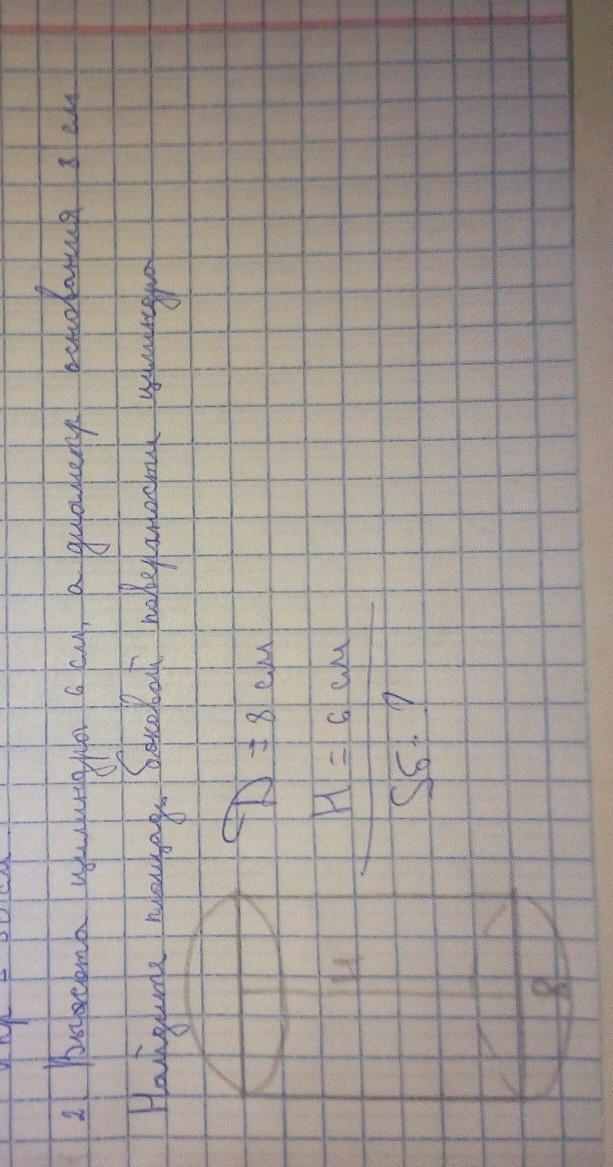 2. Высота цилиндра 6 см, а диаметр основания 8 см
Найдите площадь боковой поверхности цилиндра
D = 8 см
H = 6 см
Sб - ?
H
8